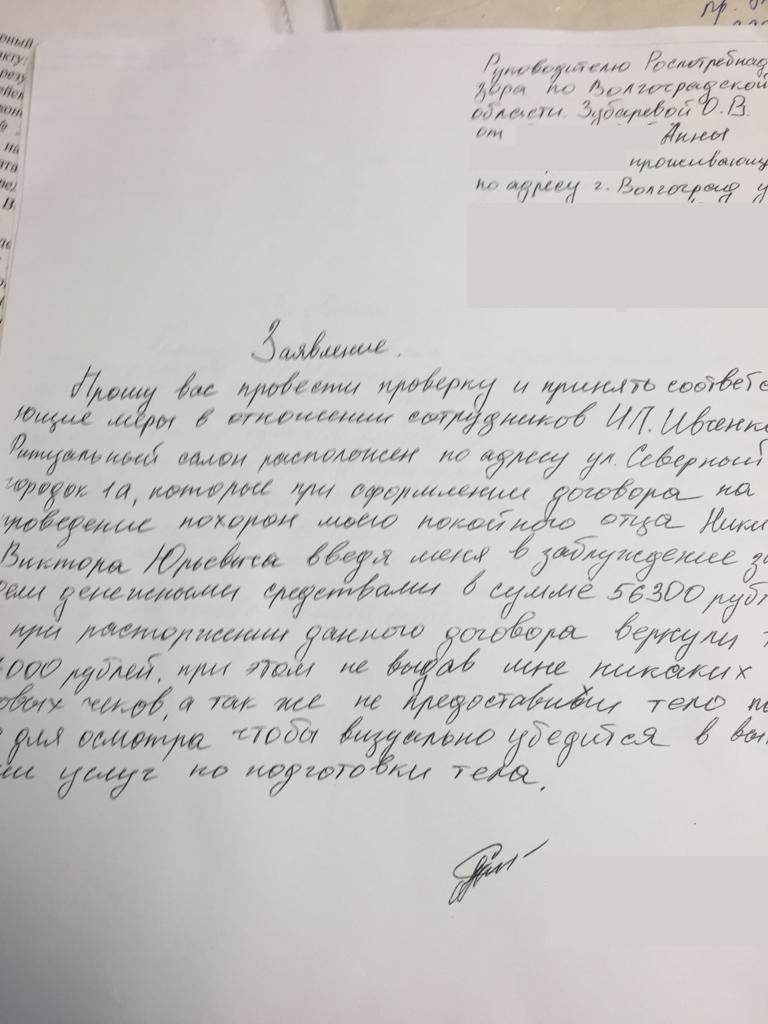 Руководителю Роспотребнад
зора по Волгоградской
области. Зубаревой О.В.
от Анны
проживающ
по адресу г. Волгоград у
Заявление.
Прошу вас провести проверку и принять соответс
ющие меры в отношении сотрудников ИП. Ивченко
Ритуальный салон расположен по адресу ул. Северный
городок 1а, которые при оформлении договора на
проведение похорон моего покойного отца Ники
Виктора Юрьевича введя меня в заблуждение за
дели денежными средствами в сумме 56300 рубл
при расторжении данного договора вернули
000 рублей, при этом не выдав мне никаких
овых чеков, а так же не предоставили тело по
для осмотра чтобы визуально убедится в вып
ии услуг по подготовки тела.